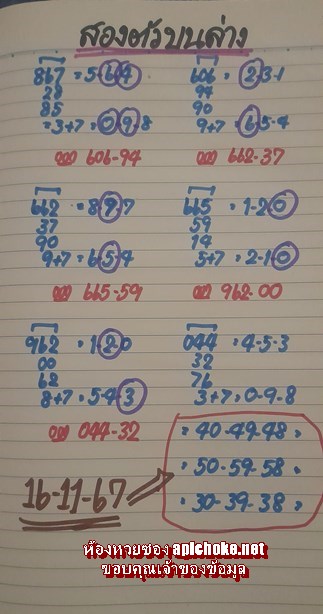 สองตัวบนล่าง
867 = 5-6-4
29
85
= 3+7 = 0-9-8
ออก 606-94
606 = 2-3-1
94
90
9+7 = 6-5-4
ออก 662-37
662 = 8-9-7
37
90
9+7 = 6-5-4
ออก 665-59
665 = 1-2-0
59
14
5+7 = 2-1-0
ออก 962-00
962 = 1-2-0
00
68
8+7 = 5-4-3
ออก 044-32
044 = 4-5-3
32
76
3+7 = 0-9-8
= 40-49-48 =
= 50-59-58 =
= 30-39-38 =
16-11-67
ห้องหวยซอง apichoke.net
ขอบคุณเจ้าของข้อมูล